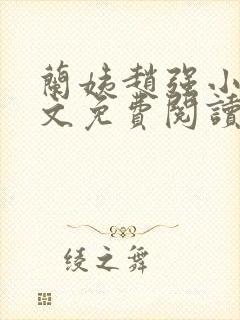 蘭姨趙强小
文免費閱讀
绫之舞